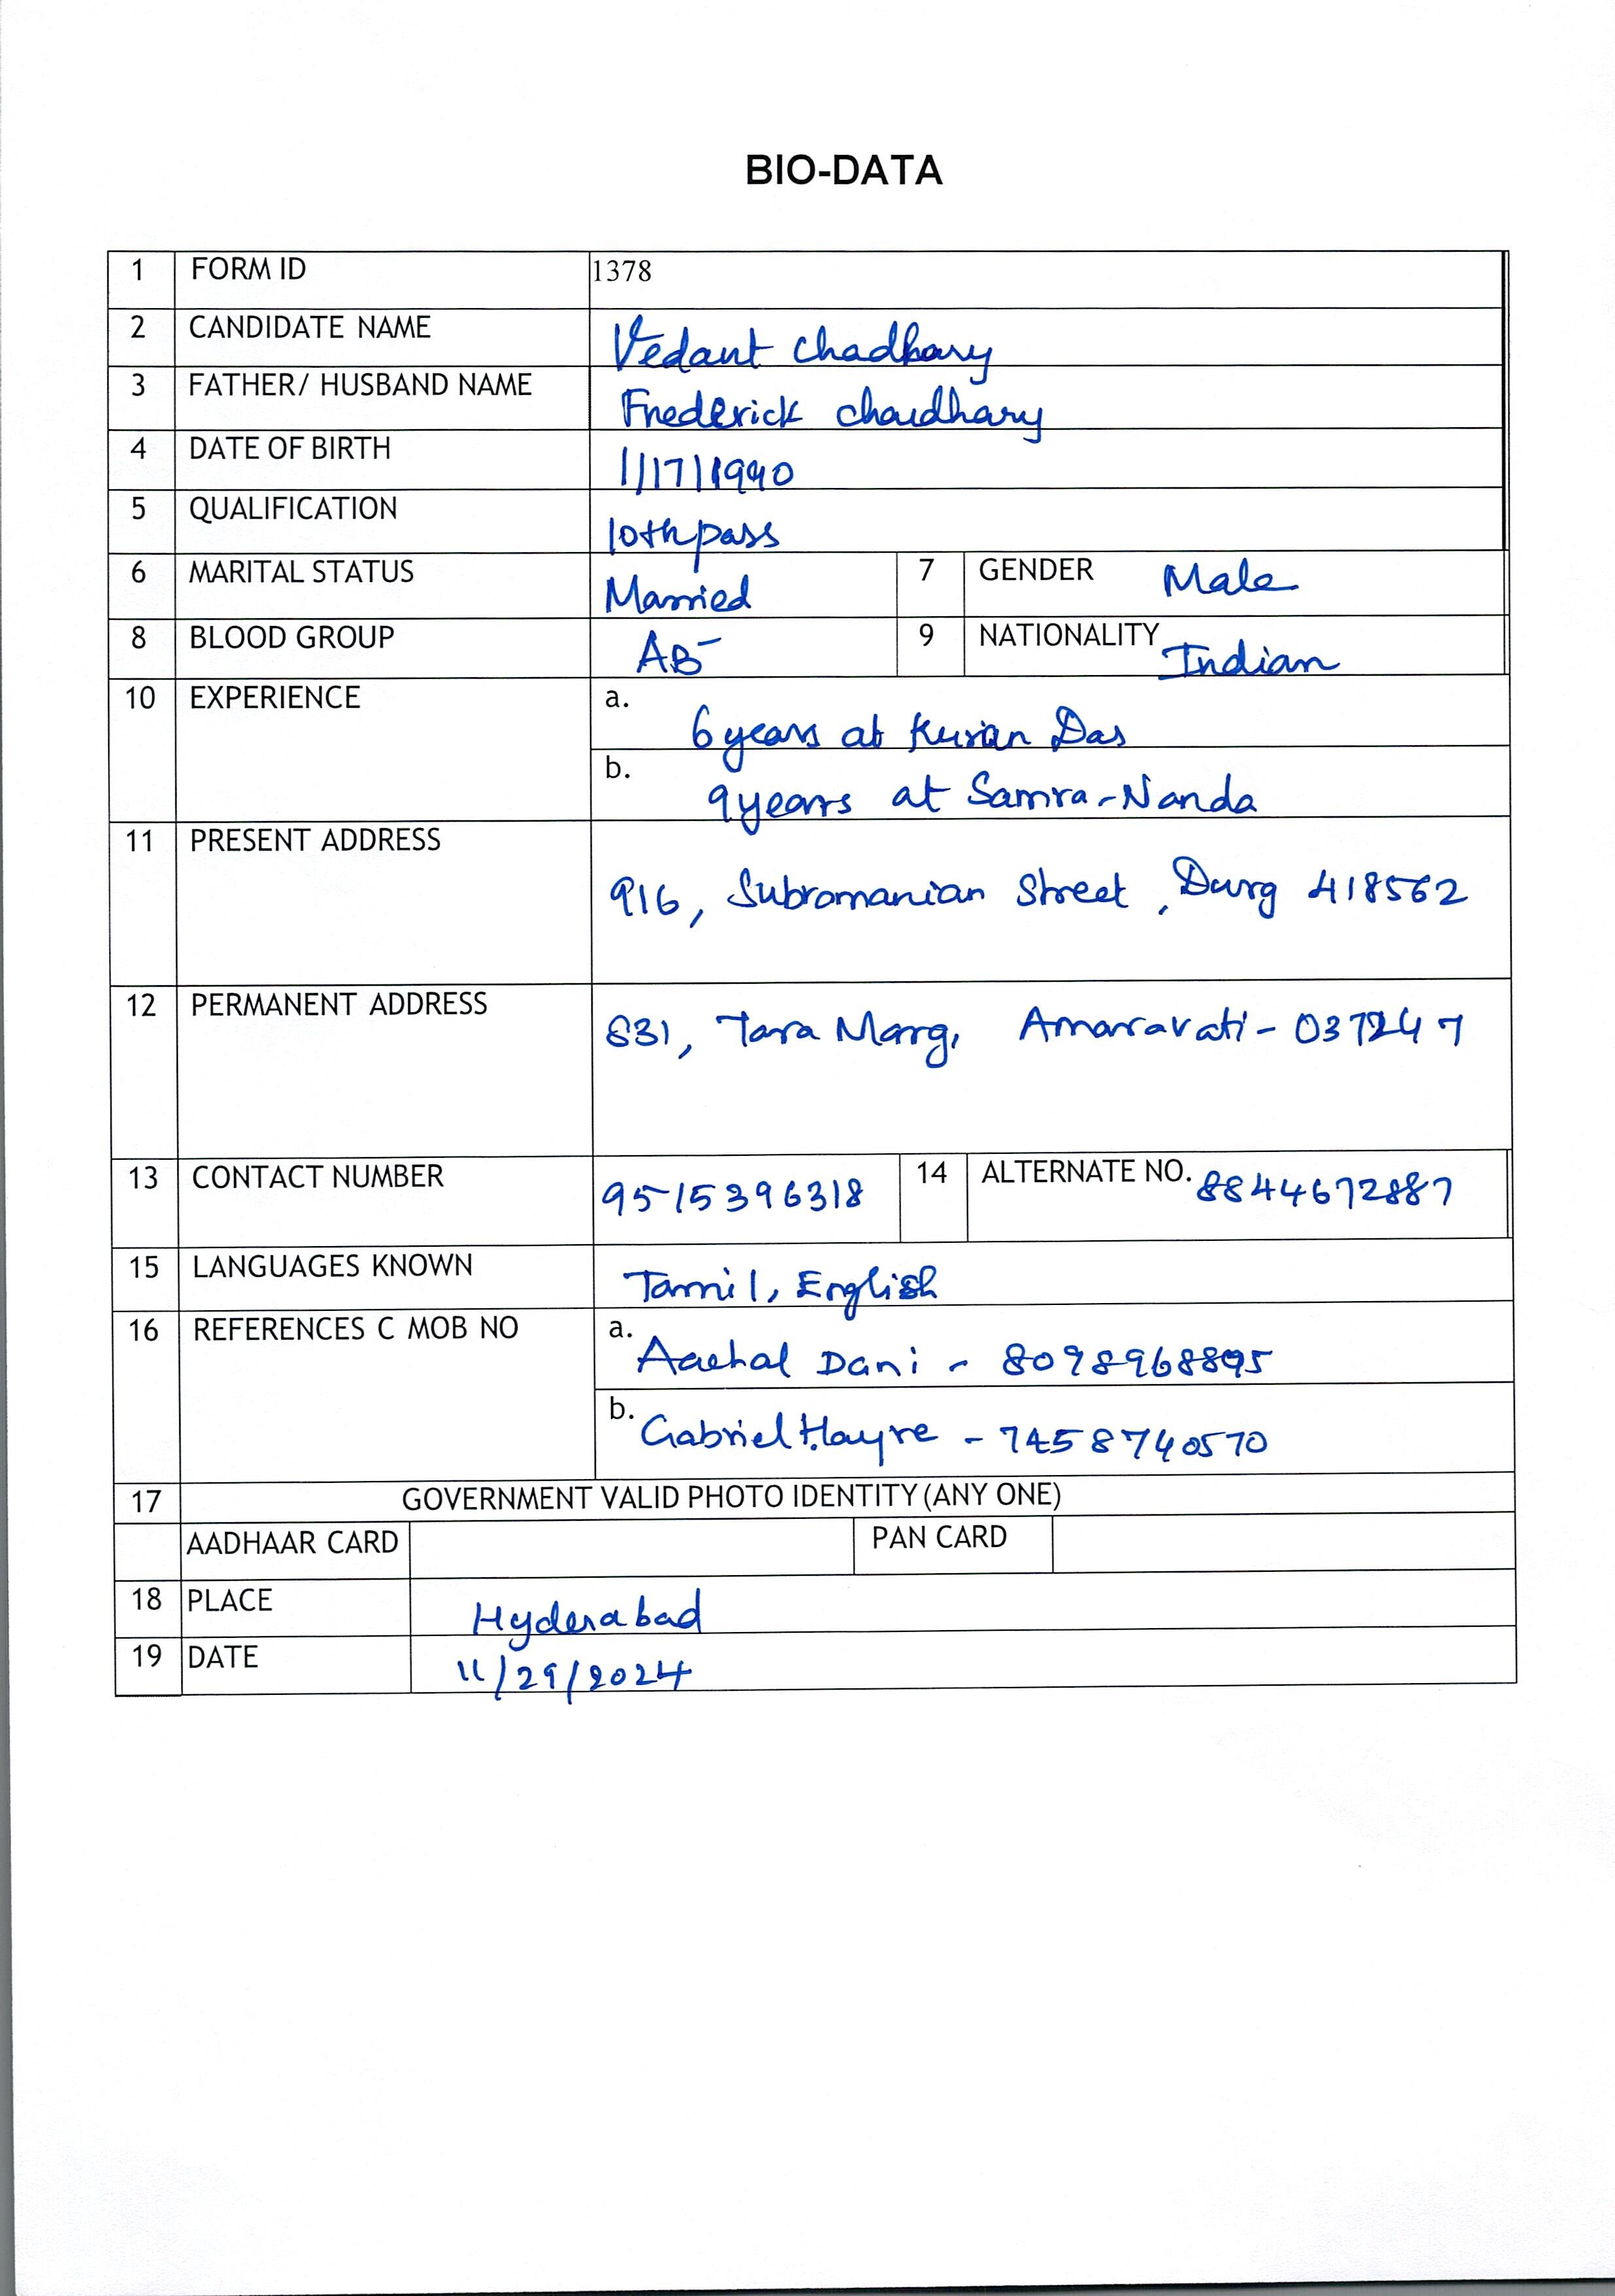 BIO-DATA
1 FORM ID 1378
2 CANDIDATE NAME Vedant Chadhary
3 FATHER/ HUSBAND NAME Frederick Chaudhary
4 DATE OF BIRTH 1/17/1990
5 QUALIFICATION 10th pass
6 MARITAL STATUS Married 7 GENDER Male
8 BLOOD GROUP AB- 9 NATIONALITY Indian
10 EXPERIENCE a. 6 years at Kurian Das
b. 9 years at Samra-Nanda
11 PRESENT ADDRESS
916, Subromanian Street, Durg 418562
12 PERMANENT ADDRESS 831, Tara Marg, Amaravati-
13 CONTACT NUMBER 9515396318 14 ALTERNATE NO. 8844672887
15 LANGUAGES KNOWN Tamil, English
16 REFERENCES C MOB NO a. Aachal Dani - 8098968895
b. Gabriel Hayre - 7458740570
17 GOVERNMENT VALID PHOTO IDENTITY (ANY ONE)
AADHAAR CARD PAN CARD
18 PLACE Hyderabad
19 DATE 11/29/2024